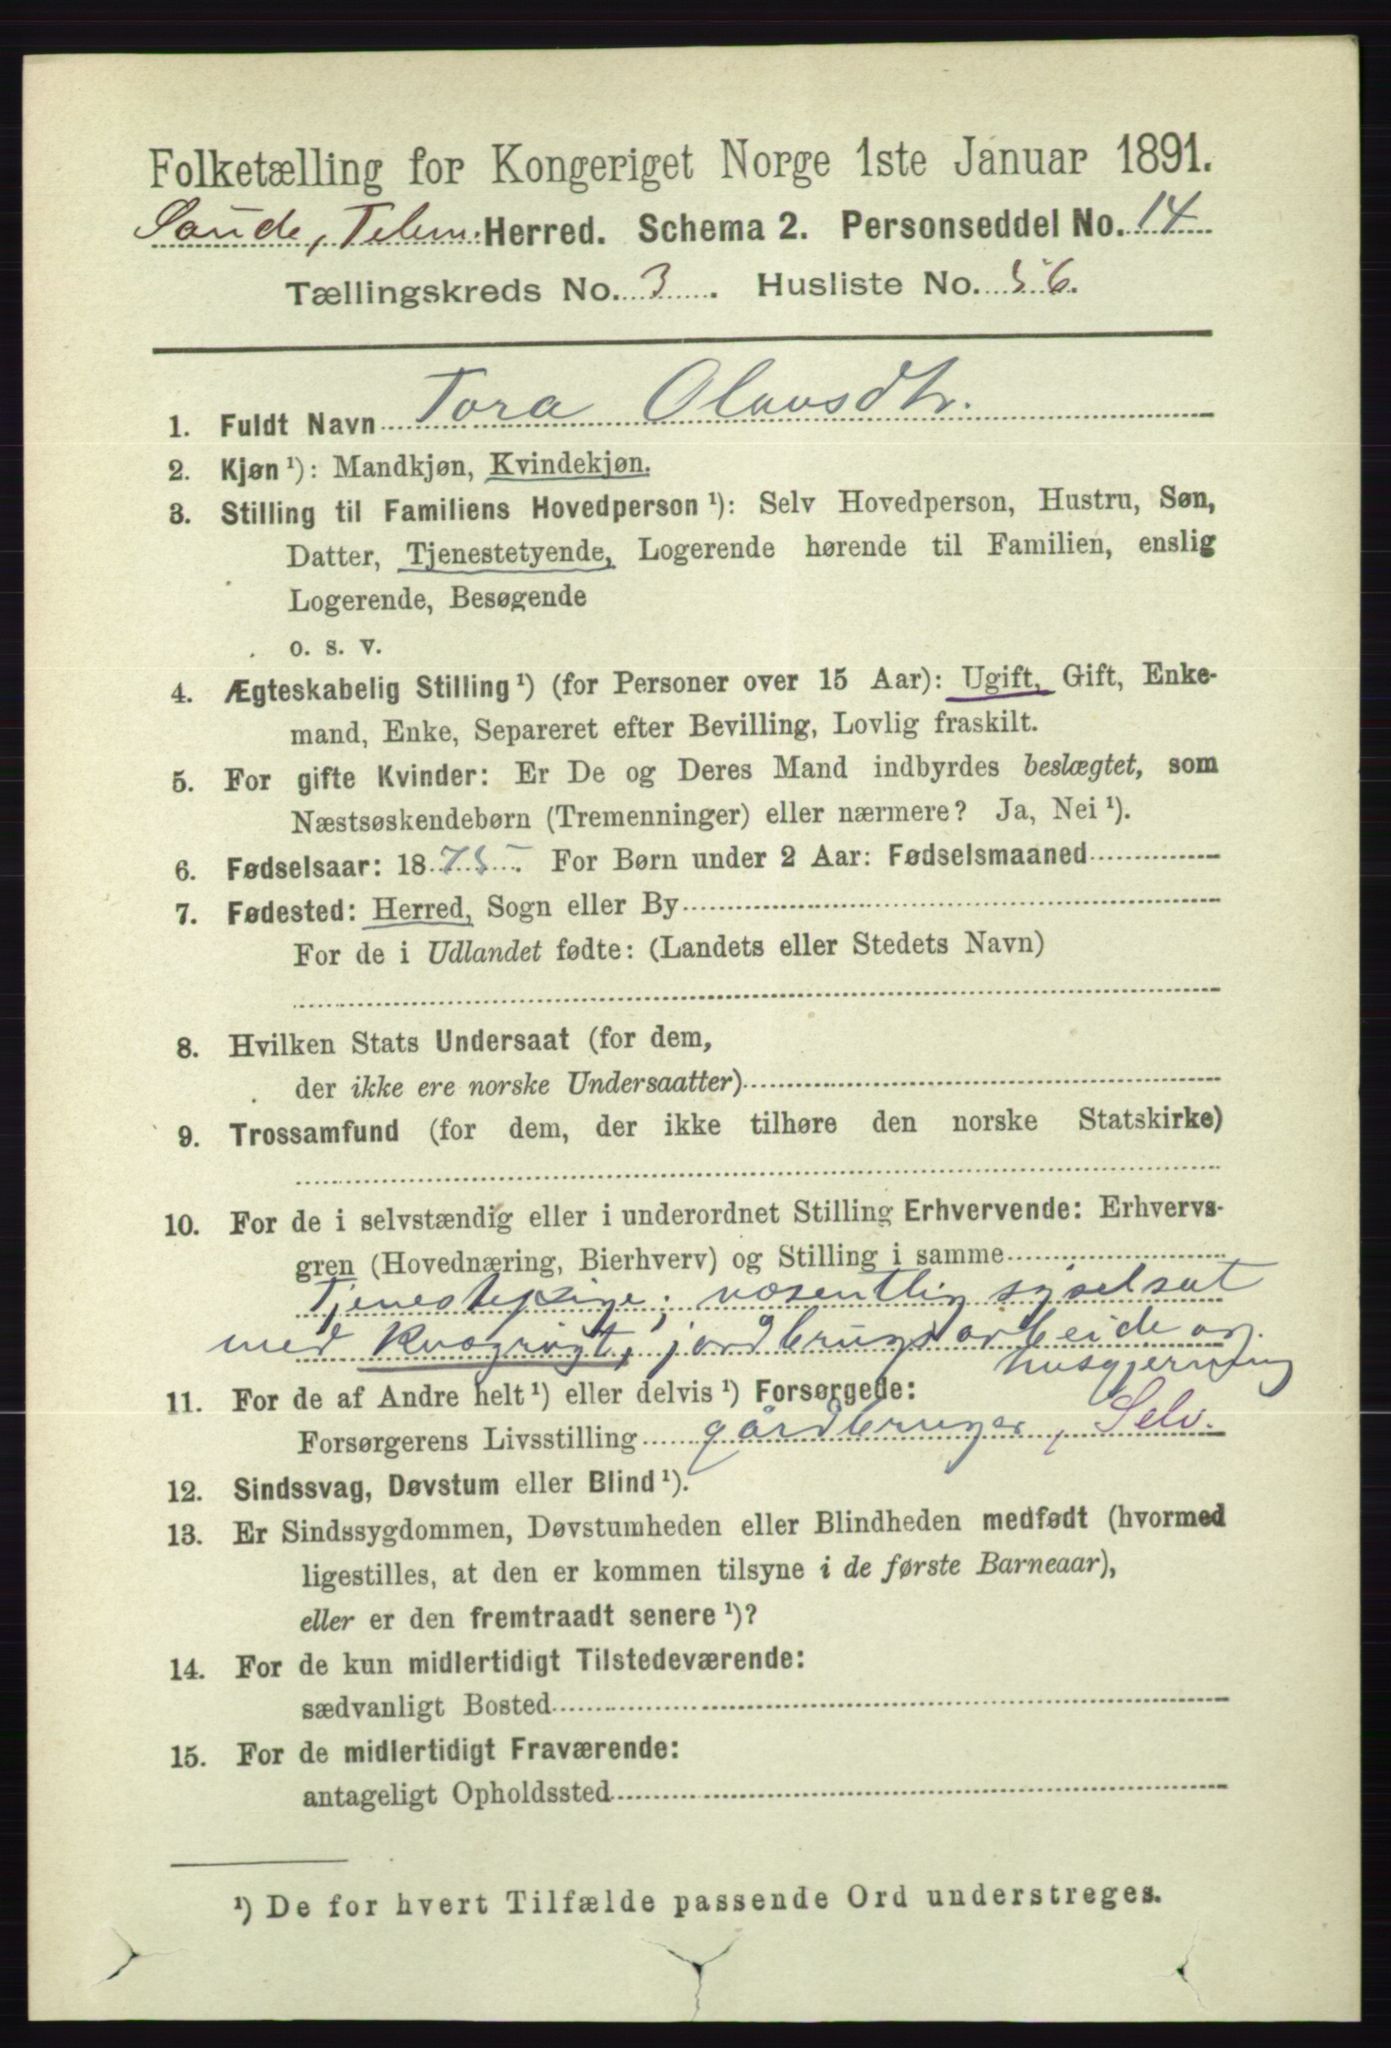 Folketælling for Kongeriget Norge 1ste Januar 1891.
Saude, Telem. Herred. Schema 2. Personseddel No. 14
Tællingskreds No. 3. Husliste No. 56.
1. Fuldt Navn Tora Olavsdtr.
2. Kjøn ¹): Mandkjøn, Kvindekjøn.
3. Stilling til Familiens Hovedperson ¹): Selv Hovedperson, Hustru, Søn,
Datter, Tjenestetyende, Logerende hørende til Familien, enslig
Logerende, Besøgende
o. s. v.
4. Ægteskabelig Stilling ¹) (for Personer over 15 Aar): Ugift, Gift, Enke-
mand, Enke, Separeret efter Bevilling, Lovlig fraskilt.
5. For gifte Kvinder: Er De og Deres Mand indbyrdes beslægtet, som
Næstsøskendebørn (Tremenninger) eller nærmere? Ja, Nei ¹).
6. Fødselsaar: 1875. For Børn under 2 Aar: Fødselsmaaned
7. Fødested: Herred, Sogn eller By
For de i Udlandet fødte: (Landets eller Stedets Navn)
8. Hvilken Stats Undersaat (for dem,
der ikke ere norske Undersaatter)
9. Trossamfund (for dem, der ikke tilhøre den norske Statskirke)
10. For de i selvstændig eller i underordnet Stilling Erhvervende: Erhvervs-
gren (Hovednæring, Bierhverv) og Stilling i samme
Tjenestepige; væsentlig sysselsat
med kvægrøgt, jordbrugsarbeide og
husgjerning
11. For de af Andre helt ¹) eller delvis ¹) Forsørgede:
Forsørgerens Livsstilling gårdbruger, Selv.
12. Sindssvag, Døvstum eller Blind ¹).
13. Er Sindssygdommen, Døvstumheden eller Blindheden medfødt (hvormed
ligestilles, at den er kommen tilsyne i de første Barneaar),
eller er den fremtraadt senere ¹)?
14. For de kun midlertidigt Tilstedeværende:
sædvanligt Bosted
15. For de midlertidigt Fraværende:
antageligt Opholdssted
¹) De for hvert Tilfælde passende Ord understreges.